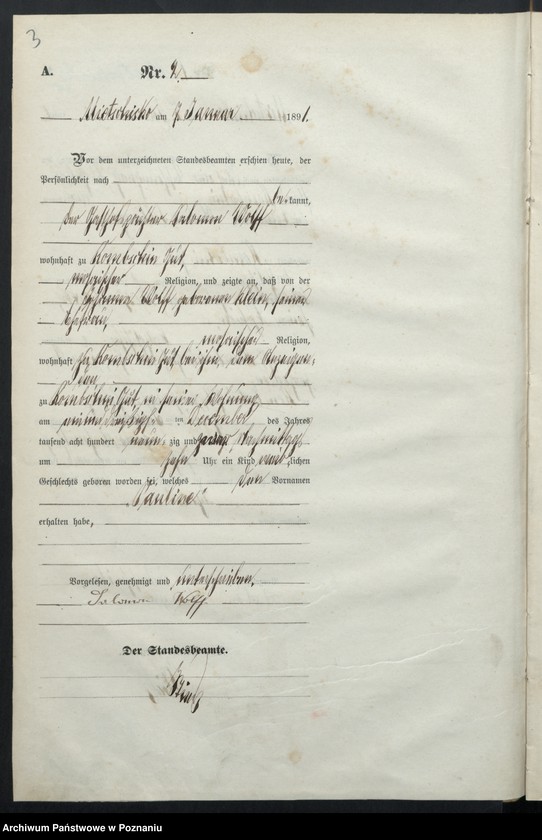 3
A. Nr. 2.
Mietschisko am 7. Januar 1891.
Vor dem unterzeichneten Standesbeamten erschien heute, der
Persönlichkeit nach
be kannt,
der Gasthofspächter Salomon Wolff
wohnhaft zu Gut,
mosaischer Religion, und zeigte an, daß von der
Wolff geborenen Klein, seiner
Ehefrau,
mosaischer Religion,
wohnhaft zu Gut bei ihm, dem Anzeigen-
den
zu Gut, in seiner Wohnung
am ten December des Jahres
tausend acht hundert neun zig und Nachmittags
um zehn Uhr ein Kind weib lichen
Geschlechts geboren worden sei, welches den Vornamen
Pauline
erhalten habe,
Vorgelesen, genehmigt und unterschrieben.
Salomon Wolff.
Der Standesbeamte.
Archiwum Państwowe w Poznaniu